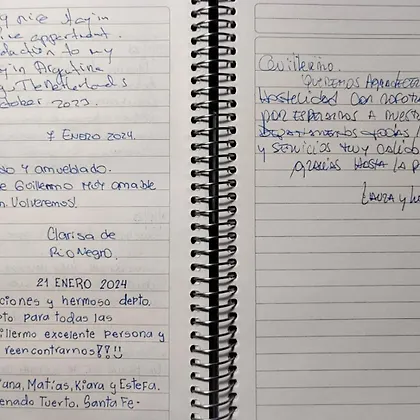 y nice stay in
apartment.
to my
in Argentina
Netherlands
October 2023.
7 ENERO 2024.
so y amueblado.
e Guillermo muy amable
n. Volveremos!
Clarisa de
Rio Negro.
21 ENERO 2024
ciones y hermoso depto.
pto para todas las
uillermo excelente persona y
reencontrarnos!!!
ana, Matías, Kiara y Estefa.
enado Tuerto. Santa Fe-
Guillermo.
QUEREMOS AGRADECER
HOSTELIDAD CON NOSOTR
POR ESPERARNOS A NUESTR
DEPARTAMENTOS
Y SERVICIOS MUY CALIDO
GRACIAS HASTA LA P
LAURA Y LU